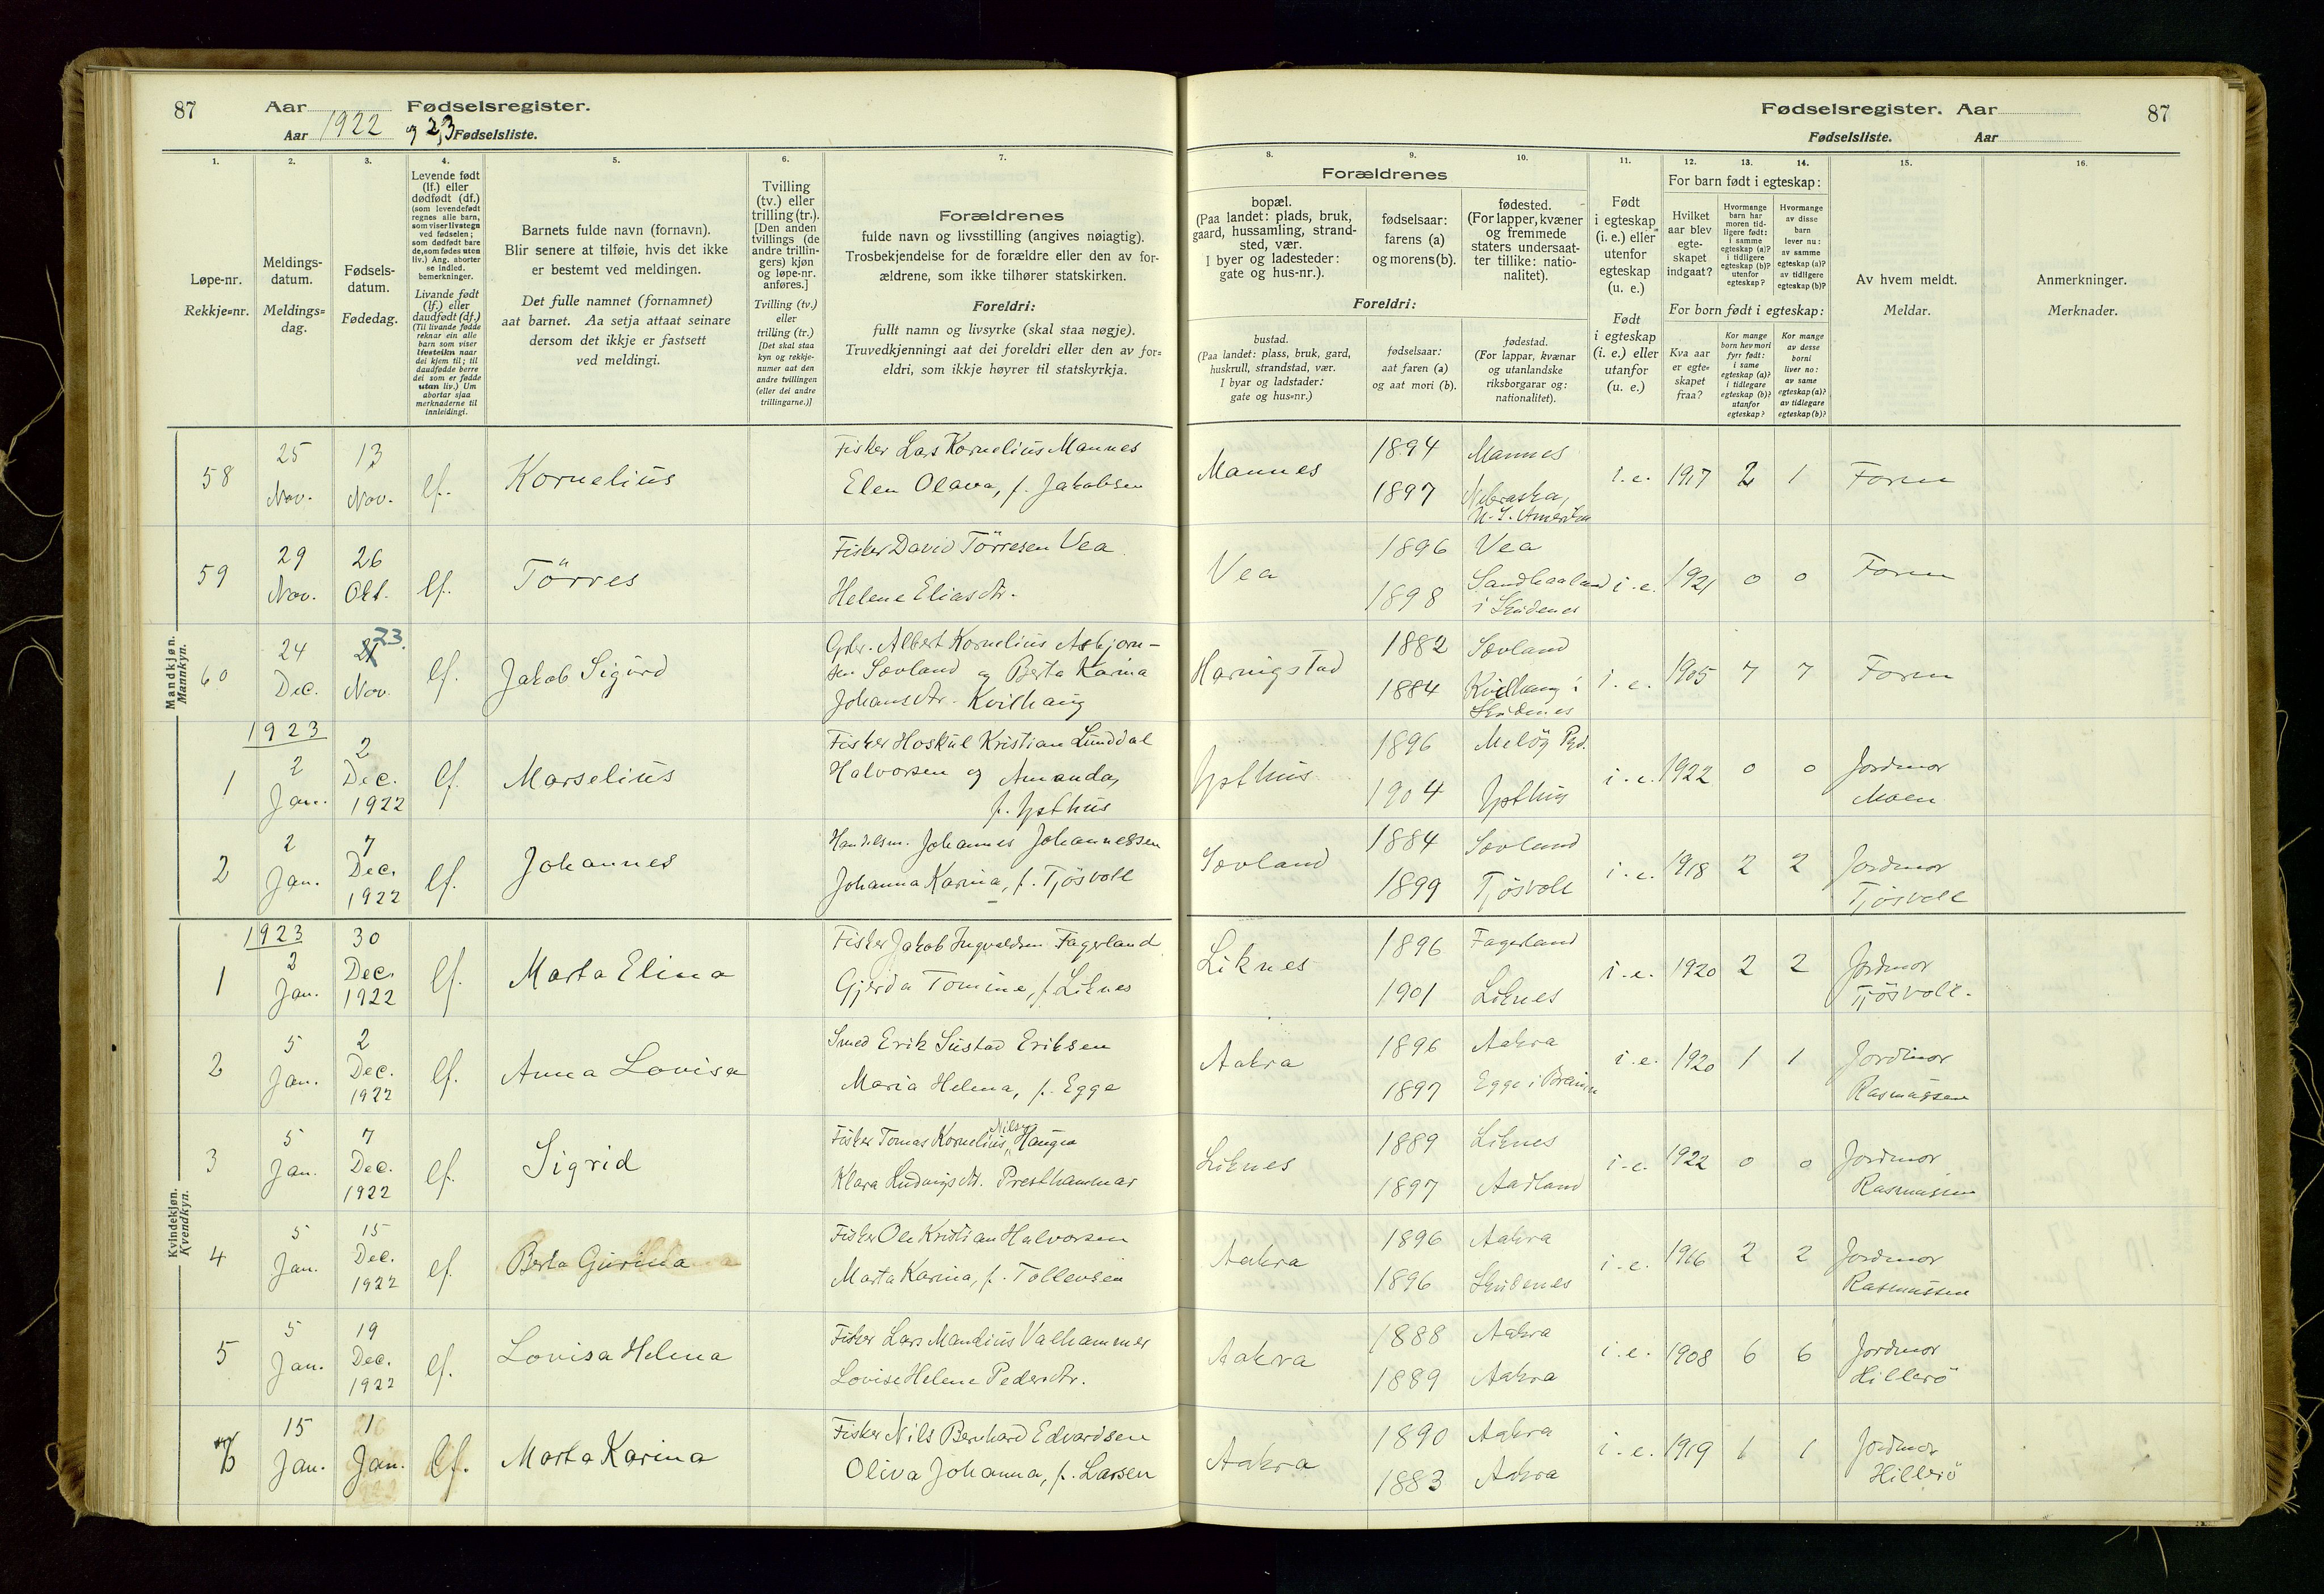 87 Aar Fødselsregister.
Aar 1922 og 23 Fødselsliste.
Fødselsregister. Aar 87
Fødselsliste. Aar
1. 2. 3. 4. 5. 6. 7.
Løpe-nr.
Rekkje=nr.
Meldings-
datum.
Meldings=
dag.
Fødsels-
datum.
Fødedag.
Levende født
(lf.) eller
dødfødt (df.)
(som levendefødt
regnes alle barn,
som viser livstegn
ved fødselen;
som dødfødt bare
de, som fødes uten
liv.) Ang. aborter
se indled.
bemerkninger.
Livande født
(lf.) eller
daudfødt (df.)
(Til livande fødde
reknar ein alle
barn som viser
livsteikn naar
dei kjem til; til
daudfødde berre
dei som er fødde
utan liv.) Um
abortar sjaa
merknaderne til
innleidingi.
Barnets fulde navn (fornavn).
Blir senere at tilføie, hvis det ikke
er bestemt ved meldingen.
Det fulle namnet (fornamnet)
aat barnet. Aa setja attaat seinare
dersom det ikkje er fastsett
ved meldingi.
Tvilling
(tv.) eller
trilling (tr.).
[Den anden
tvillings (de
andre trillin-
gers) kjøn
og løpe-nr.
anføres.]
Tvilling (tv.)
eller
trilling (tr.)
[Det skal staa
kyn og rekkje-
numer aat den
andre tvillingen
(eller dei andre
trillingarne.)]
Forældrenes
fulde navn og livsstilling (angives nøiagtig).
Trosbekjendelse for de forældre eller den av for-
ældrene, som ikke tilhører statskirken.
Foreldri:
fullt namn og livsyrke (skal staa nøgje).
Truvedkjenningi aat dei foreldri eller den av for=
eldri, som ikkje høyrer til statskyrkja.
8. 9. 10. 11. 12. 13. 14. 15. 16.
Forældrenes
bopæl.
(Paa landet: plads, bruk,
gaard, hussamling, strand-
sted, vær.
I byer og ladesteder:
gate og hus-nr.).
fødselsaar:
farens (a)
og morens (b).
fødested.
(For lapper, kvæner
og fremmede
staters undersaat-
ter tillike: natio-
nalitet).
Foreldri:
bustad.
(Paa landet: plass, bruk, gard,
huskrull, strandstad, vær.
I byar og ladstader:
gate og hus=nr.)
fødselsaar:
aat faren (a)
og aat mori (b).
fødestad.
(For lappar, kvænar
og utanlandske
riksborgarar og:
nationalitet).
Født
i egteskap
(i. e.) eller
utenfor
egteskap
(u. e.)
Født
i egteskap
(i. e.) eller
utanfor
(u. e.)
For barn født i egteskap:
Hvilket
aar blev
egte-
skapet
indgaat?
Hvormange
barn har
moren tid-
ligere født:
i samme
egteskap (a)?
i tidligere
egteskap (b)?
utenfor
egteskap?
Hvormange
av disse
barn
lever nu:
av samme
egteskap (a)?
av tidligere
egteskap (b)?
For born født i egteskap:
Kva aar
er egte=
skapet
fraa?
Kor mange
born hev mori
fyrr født:
i same
egteskap (a)?
i tidlegare
egteskap (b)?
utanfor
egteskap?
Kor mange
av desse
borni
liver no:
av same
egteskap (a)?
av tidlegare
egteskap (b)?
Av hvem meldt.
Meldar.
Anmerkninger.
Merknader.
Mandkjøn.
Mannkyn.
58 25 Nov. 13 Nov. lf. Kornelius
Fisker Lars Kornelius Mannes
Elen Olava, f. Jakobsen
Mannes 1894 Mannes
1897 Nebraska,
N. S. Amerika
i. e. 1917 2 1 Faren
59 29 Nov. 26 Okt. lf. Törres
Fisker David Törresen Vea
Helene Eliasdtr.
Vea 1896 Vea
1898 Sandhaaland
i Skudenes
i. e. 1921 0 0 Faren
60 24 Dec. 23. Nov. lf. Jakob Sigurd
Gbr. Albert Kornelius Asbjørn-
sen Sævland og Berta Karina
Johansdtr. Kvilhaug
Havnigstad 1882 Sævland
1884 Kvilhaug i
Skudenes
i. e. 1905 7 7 Faren
1923
1 2 Jan. 2 Dec. 1922 lf. Marselius
Fisker Hoskul Kristian Lunddal
Halvorsen og Amanda,
f. Ypsthus
Ypsthus 1896 Melöy Pgd.
1904 Ypsthus
i. e. 1922 0 0 Jordmor
Moen
2 2 Jan. 7 Dec. 1922 lf. Johannes
Handelsm. Johannes Johannessen
Johanna Karina, f. Tjösvoll
Sævland 1884 Sævland
1899 Tjösvoll
i. e. 1918 2 2 Jordmor
Tjösvoll
Kvindekjøn.
Kvendkyn.
1923
1 2 Jan. 30 Dec. 1922 lf. Marta Elina
Fisker Jakob Ingvaldsen Fagerland
Gjerda Tomine, f. Liknes
Liknes 1896 Fagerland
1901 Liknes
i. e. 1920 2 2 Jordmor
Tjösvoll.
2 5 Jan. 2 Dec. 1922 lf. Anna Lovisa
Smed Erik Sustad Eriksen
Maria Helena, f. Egge
Aakra 1896 Aakra
1897 Egge i
i. e. 1920 1 1 Jordmor
Rasmussen
3 5 Jan. 7 Dec. 1922 lf. Sigrid
Fisker Tomas Kornelius Nilsen Haugen
Klara Ludvigsdtr. Presthammar
Liknes 1889 Liknes
1897 Aadland
i. e. 1922 0 0 Jordmor
Rasmussen
4 5 Jan. 15 Dec. 1922 lf. Berta Gurina
Fisker Ole Kristian Halvorsen
Marta Karina, f. Tollevsen
Aakra 1896 Aakra
1896 Skudenes
i. e. 1916 2 2 Jordmor
Rasmussen
5 5 Jan. 19 Dec. 1922 lf. Lovisa Helena
Fisker Lars Mandius Valhammer
Lovise Helene Pedersdtr.
Aakra 1888 Aakra
1889 Aakra
i. e. 1908 6 6 Jordmor
Hillerö
6 15 Jan. 1 Jan. lf. Marta Karina
Fisker Nils Bernhard Edvardsen
Oliva Johanna, f. Larsen
Aakra 1890 Aakra
1883 Aakra
i. e. 1919 1 1 Jordmor
Hillerö